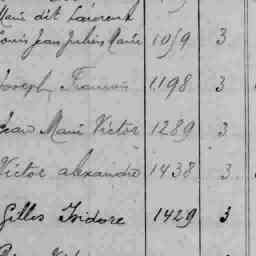 Marie dit
Louis Jean Julien Marie 1059 3
Joseph Francois 1198 3
Jean Marie Victor 1289 3
Victor alexandre 1438 3
Gilles Isidore 1429 3